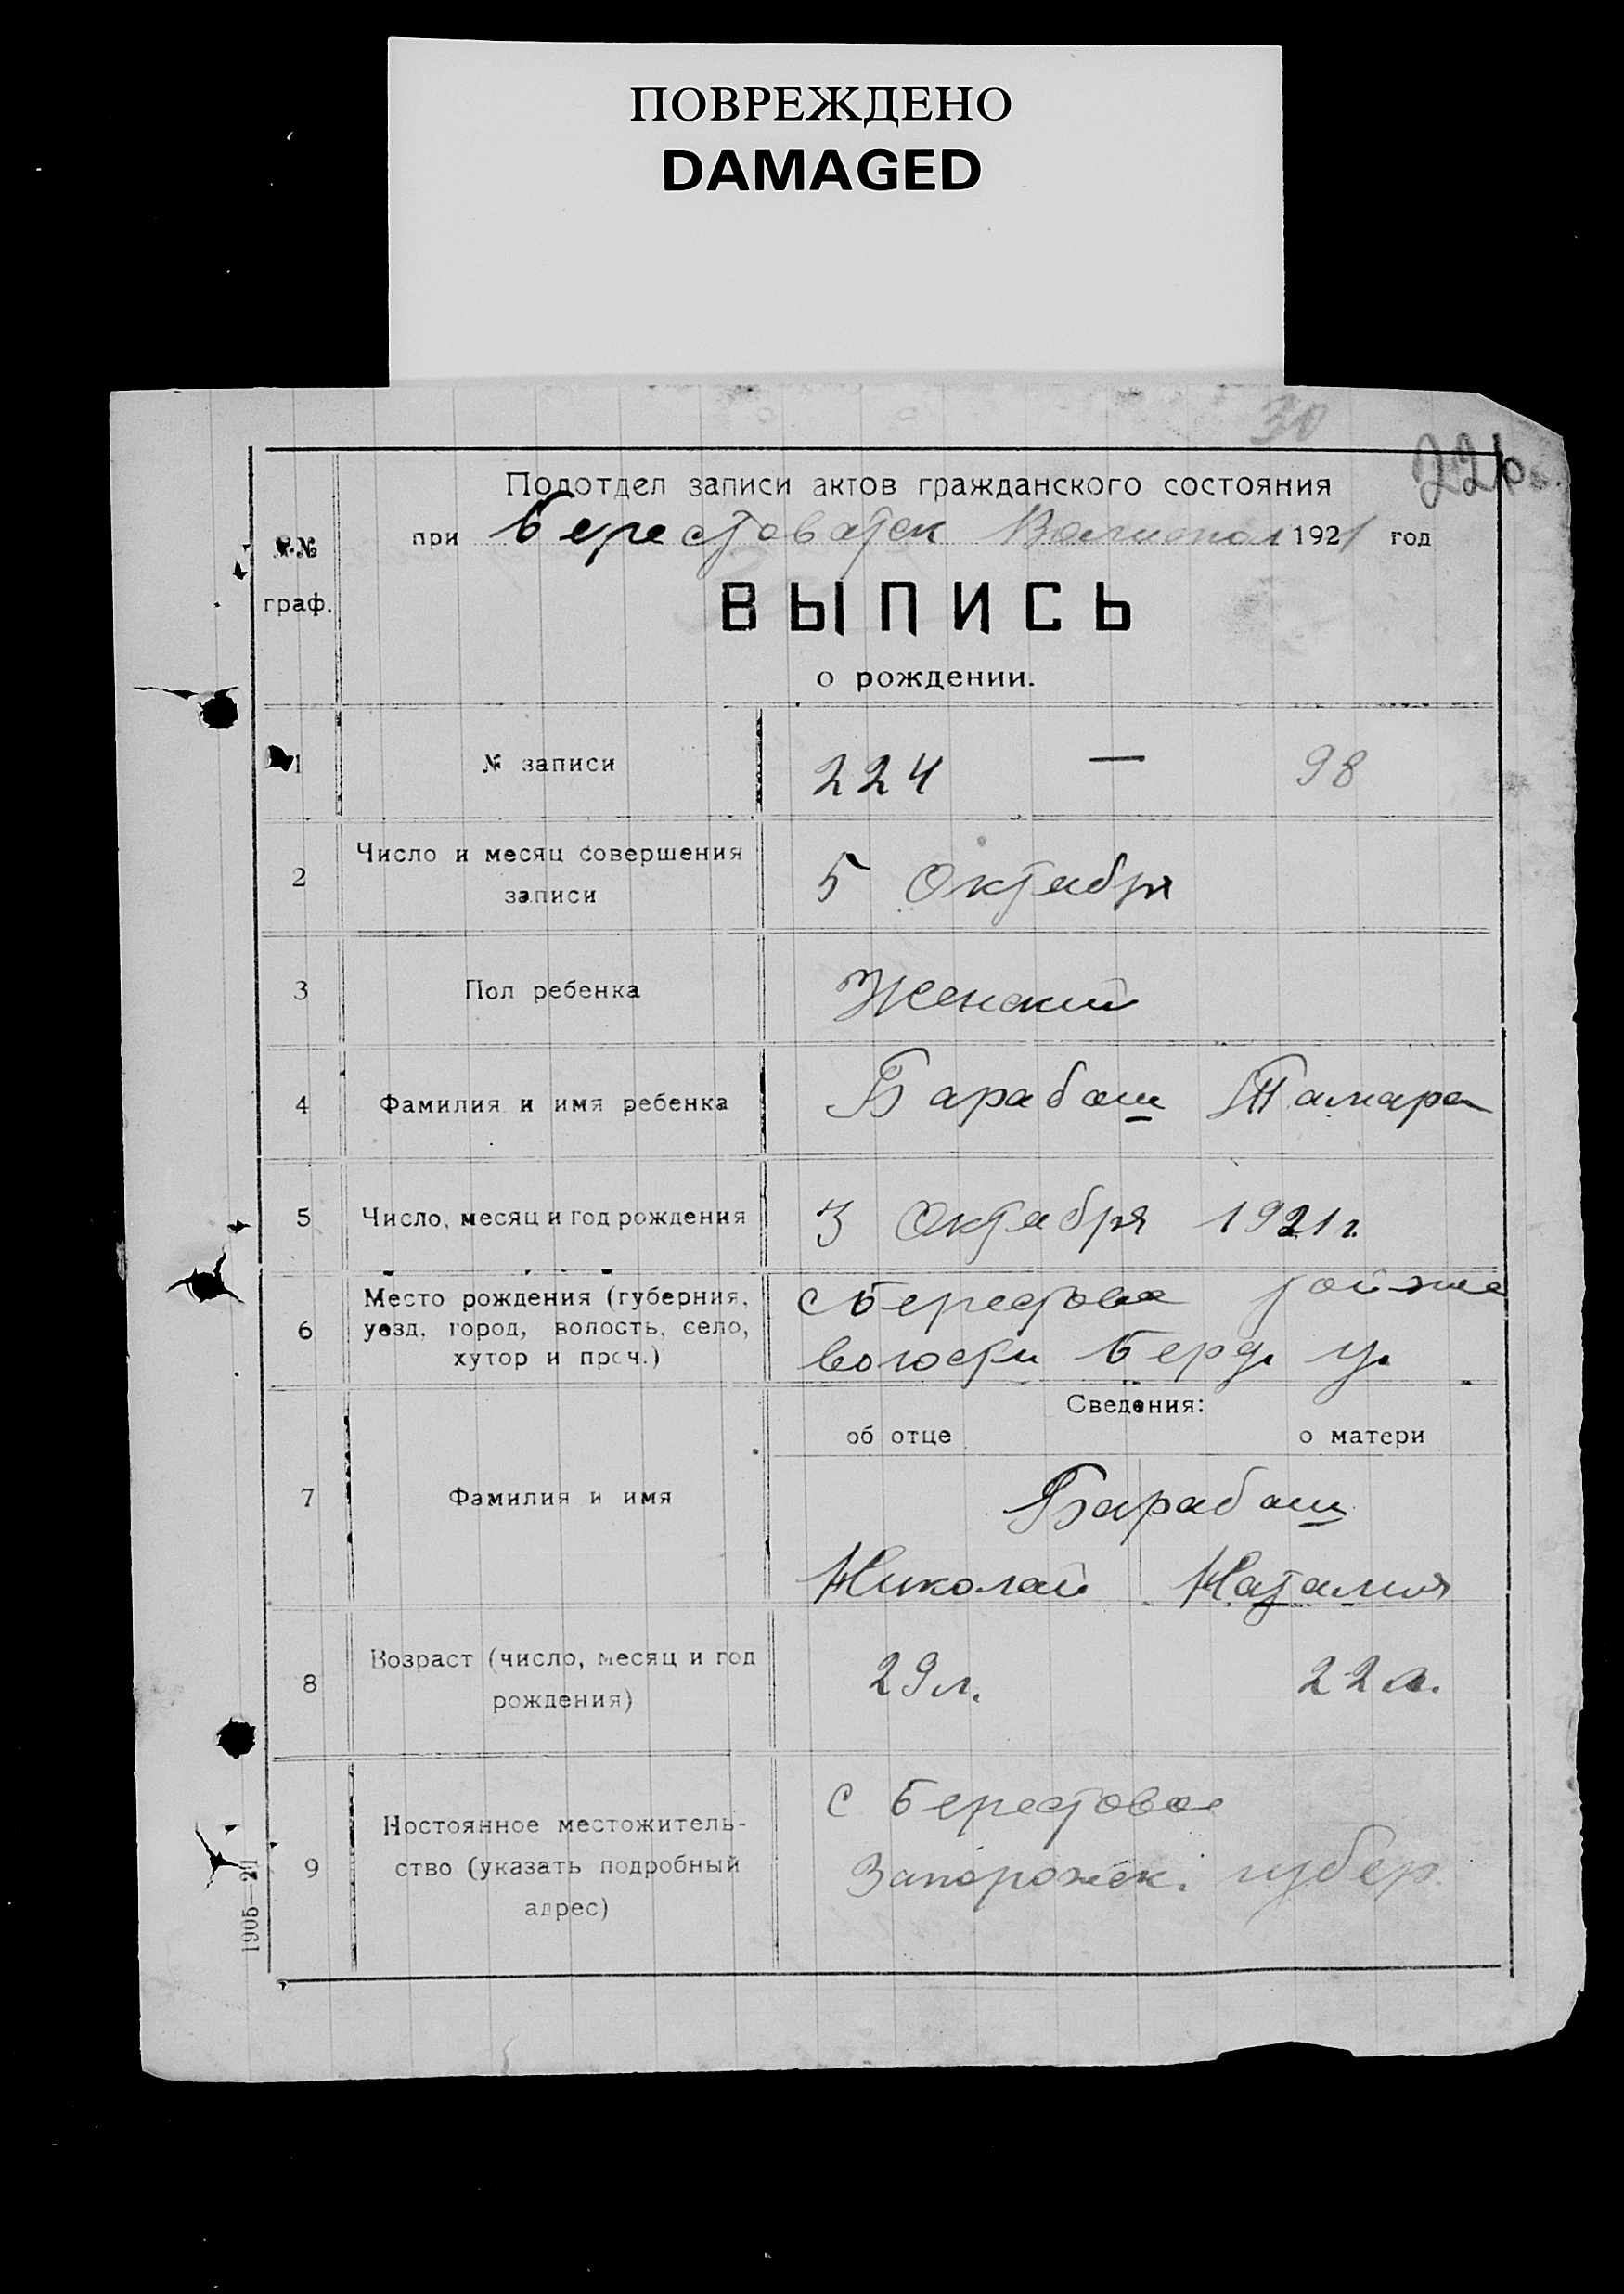 ПОВРЕЖДЕНО
DAMAGED
30
Подотдел записи актов гражданского состояния
при Берестоватск 1921 год
№№
граф.
ВЫПИСЬ
о рождении.
1 № записи 224 — 98
2 Число и месяц совершения
записи 5 Октября
3 Пол ребенка Женский
4 Фамилия и имя ребенка Барабаш Тамара
5 Число, месяц и год рождения 3 Октября 1921 г.
6 Место рождения (губерния,
уезд, город, волость, село,
хутор и проч.)
с Берестовое той же
волости Берд. у.
Сведения:
об отце о матери
7 Фамилия и имя Барабаш
Николай Наталия
8 Возраст (число, месяц и год
рождения) 29 л. 22 л.
9 Ностоянное местожитель-
ство (указать подробный
адрес)
с Берестовое
Запорожск. губер.
1905—21